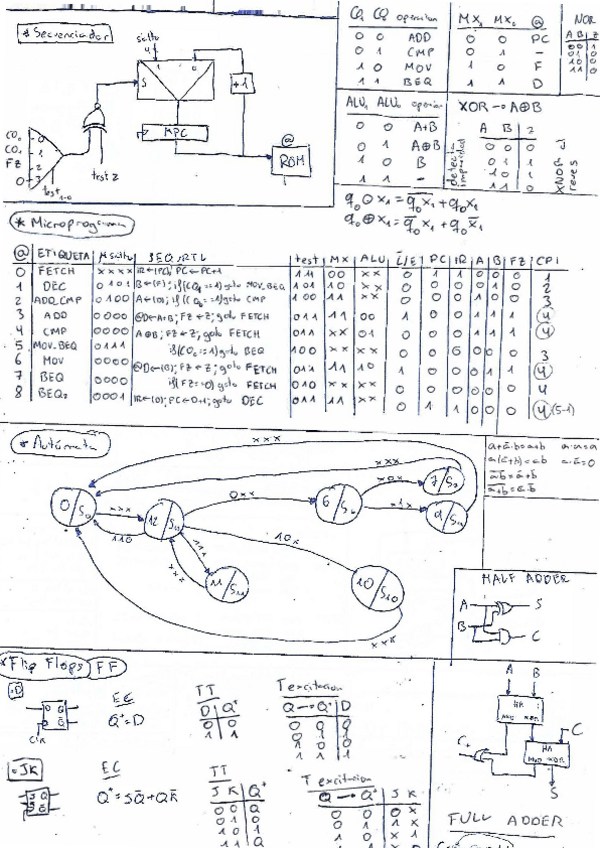 * Secuenciador
salto
4
1
0
S
+1
MPC
@
ROM
CO₀
CO₁
FZ
0
0
1
2
3
test₁₋₀
test 2
CO₁ CO₀ operation
0 0 ADD
0 1 CMP
1 0 MOV
1 1 BEQ
MX₁ MX₀ @
0 0 PC
0 1 -
1 0 F
1 1 D
NOR
A B Z
0 0 1
0 1 0
1 0 0
1 1 0
ALU₁ ALU₀ operación
0 0 A+B
0 1 A⊕B
1 0 B
1 1 -
XOR → A⊕B
detecta imparidad
A B Z
0 0 0
0 1 1
1 0 1
1 1 0
XNOR al reves
q₀⊙x₁ = q̄₀x̄₁ + q₀x₁
q₀⊕x₁ = q̄₀x₁ + q₀x̄₁
* Microprograma
@ ETIQUETA μsalto SEQ:RTL test MX ALU L/E PC IR A B FZ CPI
0 FETCH xxxx IR←(PC); PC←PC+1 111 00 xx 0 1 1 0 0 0 1
1 DEC 0101 B←(F); if(CO₁==1) goto MOV_BEQ 101 10 xx 0 0 0 0 1 0 2
2 ADD_CMP 0100 A←(D); if(CO₀==1) goto CMP 100 11 xx 0 0 0 1 0 0 3
3 ADD 0000 @D←A+B; FZ←Z; goto FETCH 011 11 00 1 0 0 1 1 1 4
4 CMP 0000 A⊕B; FZ←Z; goto FETCH 011 xx 01 0 0 0 1 1 1 4
5 MOV_BEQ 0111 if(CO₀==1) goto BEQ 100 xx xx 0 0 0 0 0 0 3
6 MOV 0000 @D←(B); FZ←Z; goto FETCH 011 11 10 1 0 0 0 1 1 4
7 BEQ 0000 if(FZ==0) goto FETCH 010 xx xx 0 0 0 0 0 0 4
8 BEQ₂ 0001 IR←(D); PC←D+1; goto DEC 0 1 1 0 0 0 4 (5-1)
* Autómata
xxx
xxx
0/S₀
xxx
110
12/S₁₂
0xx
6/S₆
x0x
7/S₇
x1x
9/S₉
111
xxx
11/S₁₁
10x
10/S₁₀
xxx
a+ā·b=a+b a·a=a
a(ā+b)=ab a·ā=0
HALF ADDER
A
B
S
C
* Flip Flops FF
·D
D Q
Q̄
CLK
EC
Q⁺=D
TT
D Q⁺
0 0
1 1
T excitacion
Q → Q⁺ D
0 0 0
0 1 1
1 0 0
1 1 1
·JK
J Q
K Q̄
EC
Q⁺=JQ̄+QK̄
TT
J K Q⁺
0 0 Q
0 1 0
1 0 1
1 1 Q̄
T excitacion
Q → Q⁺ J K
0 0 0 x
0 1 1 x
1 0 x 1
1 1 x 0
A B
HA
AND XOR
C
C₊
HA
AND XOR
S
FULL ADDER